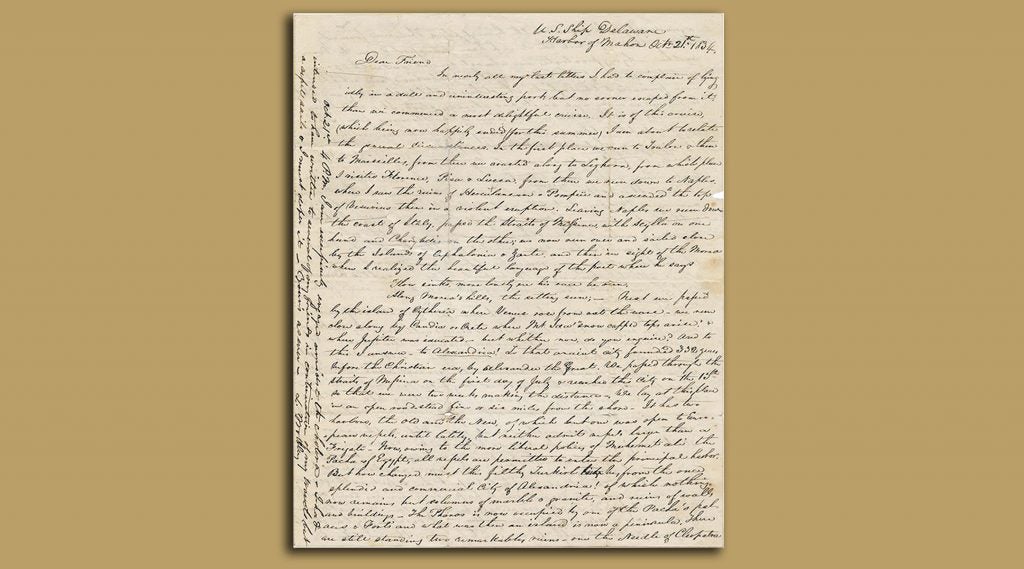 U.S. Ship Delaware
Harbor of Mahon Oct. 21st 1834.
Dear Friend
In nearly all my last letters I had to complain of lying
idly in a dull and uninteresting port but no sooner escaped from it
than we commenced a most delightful cruise. It is of this cruise,
(which being now happily ended (for this summer) I am about to relate
the general circumstances. In the first place we run to Toulon & then
to Marseilles, from there we coasted along to Leghorn, from which place
I visited Florence, Pisa & Lucca, from there we run down to Naples
where I saw the ruins of Herculaneum & Pompeii and ascended the top
of Vesuvius then in a violent eruption. Leaving Naples we run down
the coast of Italy, passed the Straits of Messina, with Scylla on one
hand and Charybdis on the other; we now run over and sailed close
by the Islands of Cephalonia & Zante, and then in sight of the Morea
where I realized the beautiful language of the poet where he says
"Slow sinks, more lovely ere his race be run,
Along Morea's hills, the setting sun; — Next we passed
by the island of Cytherea where Venus rose from out the wave — we run
close along by Candia or Crete where Mt. Ida's snow capped tops arise &
where Jupiter was educated — but whither now, do you enquire? And to
this I answer — to Alexandria! to that ancient city founded 332 years
before the Christian era, by Alexander the Great. We passed through the
Straits of Messina on the first day of July & reached this City on the 15th
so that we were two weeks making the distance. We lay at
in an open roadstead five or six miles from the shore. It has two
harbors, the Old and the New, of which but one was open to Euro-
pean vessels, until lately, but neither admits vessels larger than a
Frigate — Now, owing to the more liberal policy of Mehemet Ali the
Pacha of Egypt, all vessels are permitted to enter the principal harbor.
But how changed must this filthy Turkish be from the once
splendid and commercial City of Alexandria! of which nothing
now remains but columns of marble & granite, and ruins of walls
and buildings — The Pharos is now occupied by one of the Pacha's pal-
aces & Forts and what was then an island is now a peninsula. There
are still standing two remarkable ruins — one the Needle of Cleopatra
Oct 21st 4 P.M.
intended to have written to